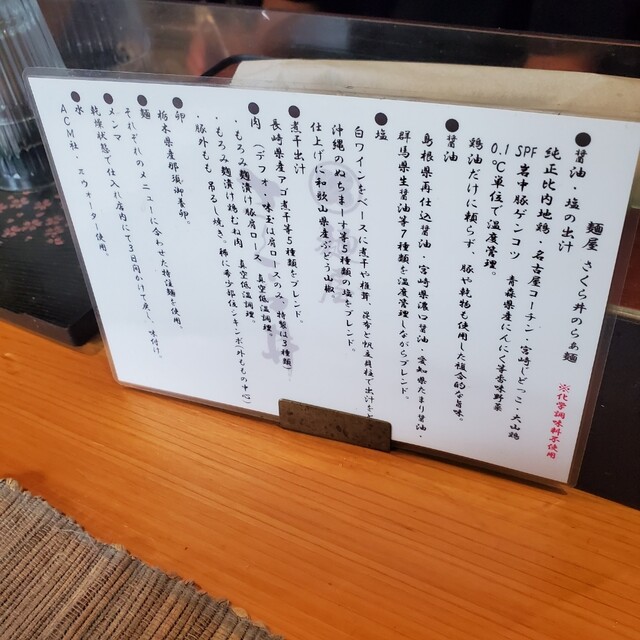 麺屋 さくら井のらぁ麺
※化学調味料不使用
●醤油・塩の出汁
純正比内地鶏・名古屋コーチン・宮崎じどっこ・大山鶏
SPF岩中豚ゲンコツ 青森県産にんにく等香味野菜
0.1℃単位で温度管理。
鶏油だけに頼らず、豚や乾物も使用した複合的な旨味。
●醤油
島根県再仕込醤油・宮崎県濃口醤油・愛知県たまり醤油・
群馬県生醤油等7種類を温度管理しながらブレンド。
●塩
白ワインをベースに煮干や椎茸、昆布と帆立貝柱で出汁を
沖縄のぬちまーす等5種類の塩をブレンド。
仕上げに和歌山県産ぶどう山椒
●煮干出汁
長崎県産アゴ煮干等5種類をブレンド。
●肉
・もろみ麹漬け豚肩ロース 真空低温調理
・もろみ麹漬け鶏むね肉 真空低温調理
・豚外もも 吊るし焼き。稀に希少部位シキンボ(外ももの中心)
●卵
栃木県産那須御養卵。
●麺
それぞれのメニューに合わせた特注麺を使用。
●メンマ
乾燥状態で仕入れ店内にて3日間かけて戻し、味付け。
●水
ACM社・エウォーター使用。